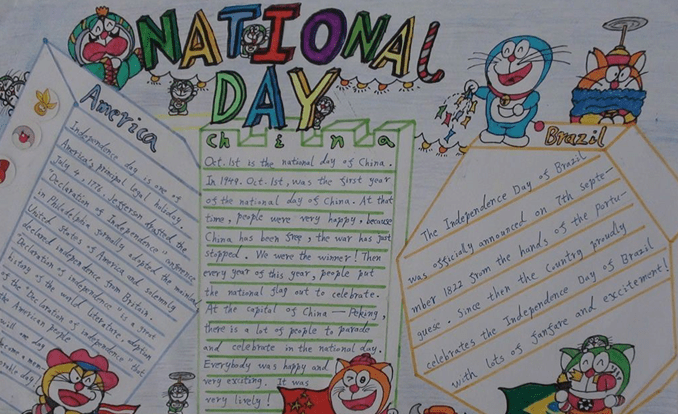 NATIONAL
DAY
America
Independence day is one of
America's principal legal holiday.
July 4, 1776, Jefferson drafted the
"Declaration of Independence" conference
in Philadelphia formally adopted the
United States of America and solemnly
declared independence from Britain.
Declaration of independence "is a
history of the world literature, adoption
of the Declaration of independence" that
the American people
will one day
China
Oct. 1st is the national day of China.
In 1949. Oct. 1st, was the first year
of the national day of China. At that
time, people were very happy, because
China has been free, the war has just
stopped. We were the winner! Then
every year of this year, people put
the national flag out to celebrate.
At the capital of China — Peking,
there is a lot of people to parade
and celebrate in the national day.
Everybody was happy and
very exciting. It was
very lively!
Brazil
The Independence Day of Brazil
was officialy announced on 7th septe-
mber 1822 from the hands of the Portu-
guese. since then the Country proudly
celebrates the Independence Day of Brazil
with lots of fanfare and excitement!